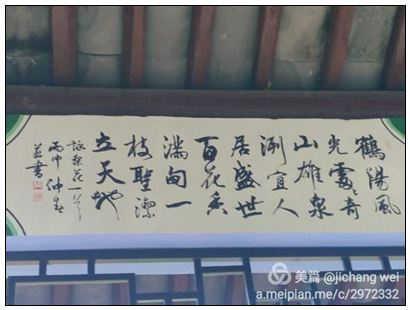 鶴陽風
光處々奇
山雄泉
洌宜人
居盛世
百花香
滿甸一
枝聖潔
立天地
詠梨花一首
丙申仲春
並書
美篇@jichang wei
a.meipian.me/c/2972332